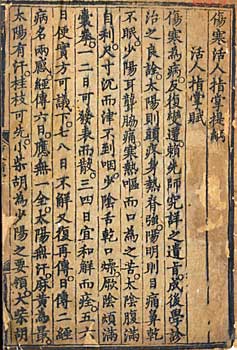 傷寒活人指掌提綱
活人指掌賦
傷寒為病反復變遷賴先師究詳之遺言成後學診
治之良詮太陽則頭疼身熱脊強陽明則目痛鼻乾
不眠少陽耳聾脇痛寒熱嘔而口為之苦太陰腹滿
自利尺寸沉而津不到咽少陰舌乾口燥厥陰煩滿
囊拳一二日可發表而散三四日宜和解而痊五六
日便實方可議下七八日不解又復再傳日傳二經
病名兩感經傳六日應無一全太陽無汗麻黃為最
太陽有汗桂枝可先小柴胡為少陽之要領大柴胡